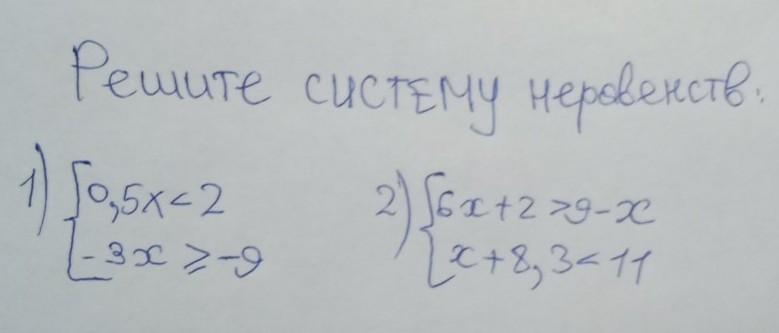 Решите систему неровенств:
1) { 0,5x < 2
-3x ≥ -9
2) { 6x + 2 > 9 - x
x + 8,3 < 11